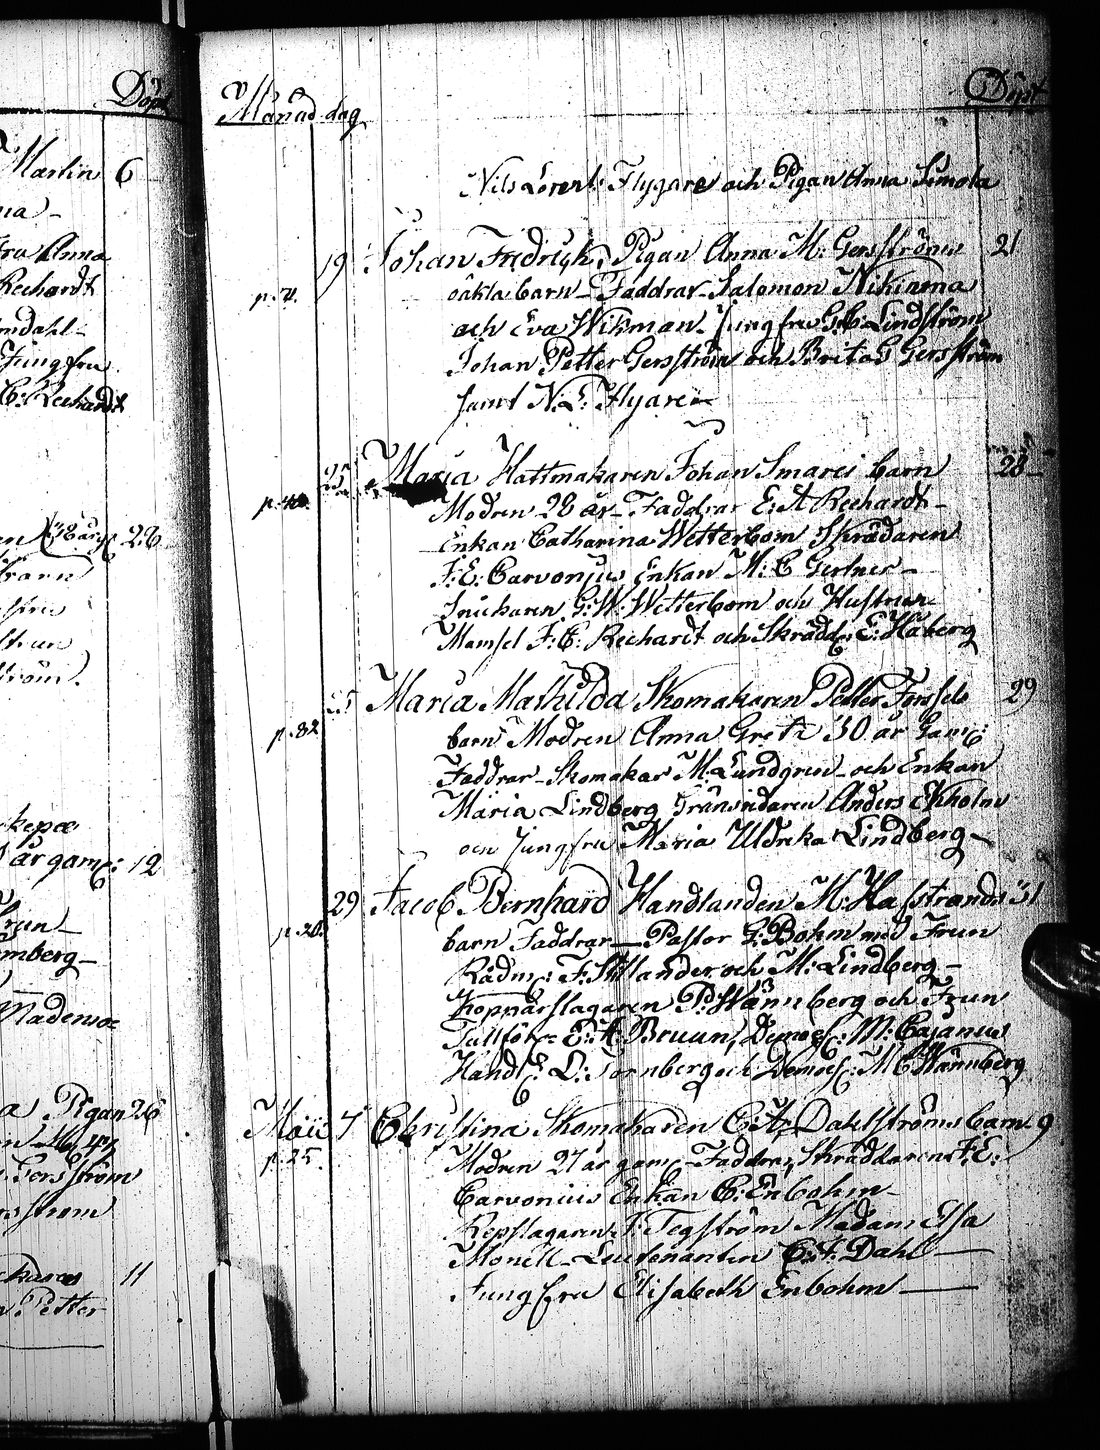 Döpt
Martin 6
na
Fru Anna
Reehardt
mdahl
Jungfru
C: Reehardt
28
barn
ström.
kepee
år gam: 12
Frun
mberg
Madensoe
a Pigan 26
Gersström
ström
11
Petter
Månad dag Döpt
Nils Lorent: Flygare och Pigan Anna Simola
19 Johan Fridrich, Pigan Anna M: Gersströms 21
p. 71. oäkta barn - Faddrar - Salomon Nikinma
och Eva Wikman - Jungfru G:C Lindström
Johan Petter Gersström och Brita G Gersström
samt N: L: Flygare
25 Maria Hattmakaren Johan Smarei barn 28
p. 40. Modren 28 år - Faddrar E: A Reehardt -
Enkan Catharina Wetterbom Skrädaren
F: E: Carvonius Enkan M: C Gertner -
Snickaren G: W: Wetterbom och Hustrun
Mamsel F: C: Reehardt och Skrädd: E: Håberg
25 Maria Mathilda Skomakaren Petter Forssels 29
p. 82 barn Modren Anna Greta 30 år Gam:
Faddrar - Skomakar M: Lundgren - och Enkan
Maria Lindberg Gränsridaren Anders Ekholm
och Jungfru Maria Uldrika Lindberg -
29 Jacob Bernhard Handlanden M: Hasstrands 31
p. 20. barn Faddrar - Pastor G: Bohm med Frun
Rådm: F: Stillander och M: Lindberg -
Kopparslagaren P: Wännberg och Frun
E: A: Bruun, Demois: M: Cajanus
Handl: L: Tornberg och Demois: M C Wännberg
Maii 7 Christina Skomakaren C: A: Dahlströms barn 9
p. 25. Modren 27 år gam: - Faddrar, Skräddaren F: E:
Carvonius Enkan C: Enbohm -
Repslagaren J: Tegström Madam Elsa
Monell - Leutenanten C: F: Dahl
Jungfru Elisabeth Enbohm